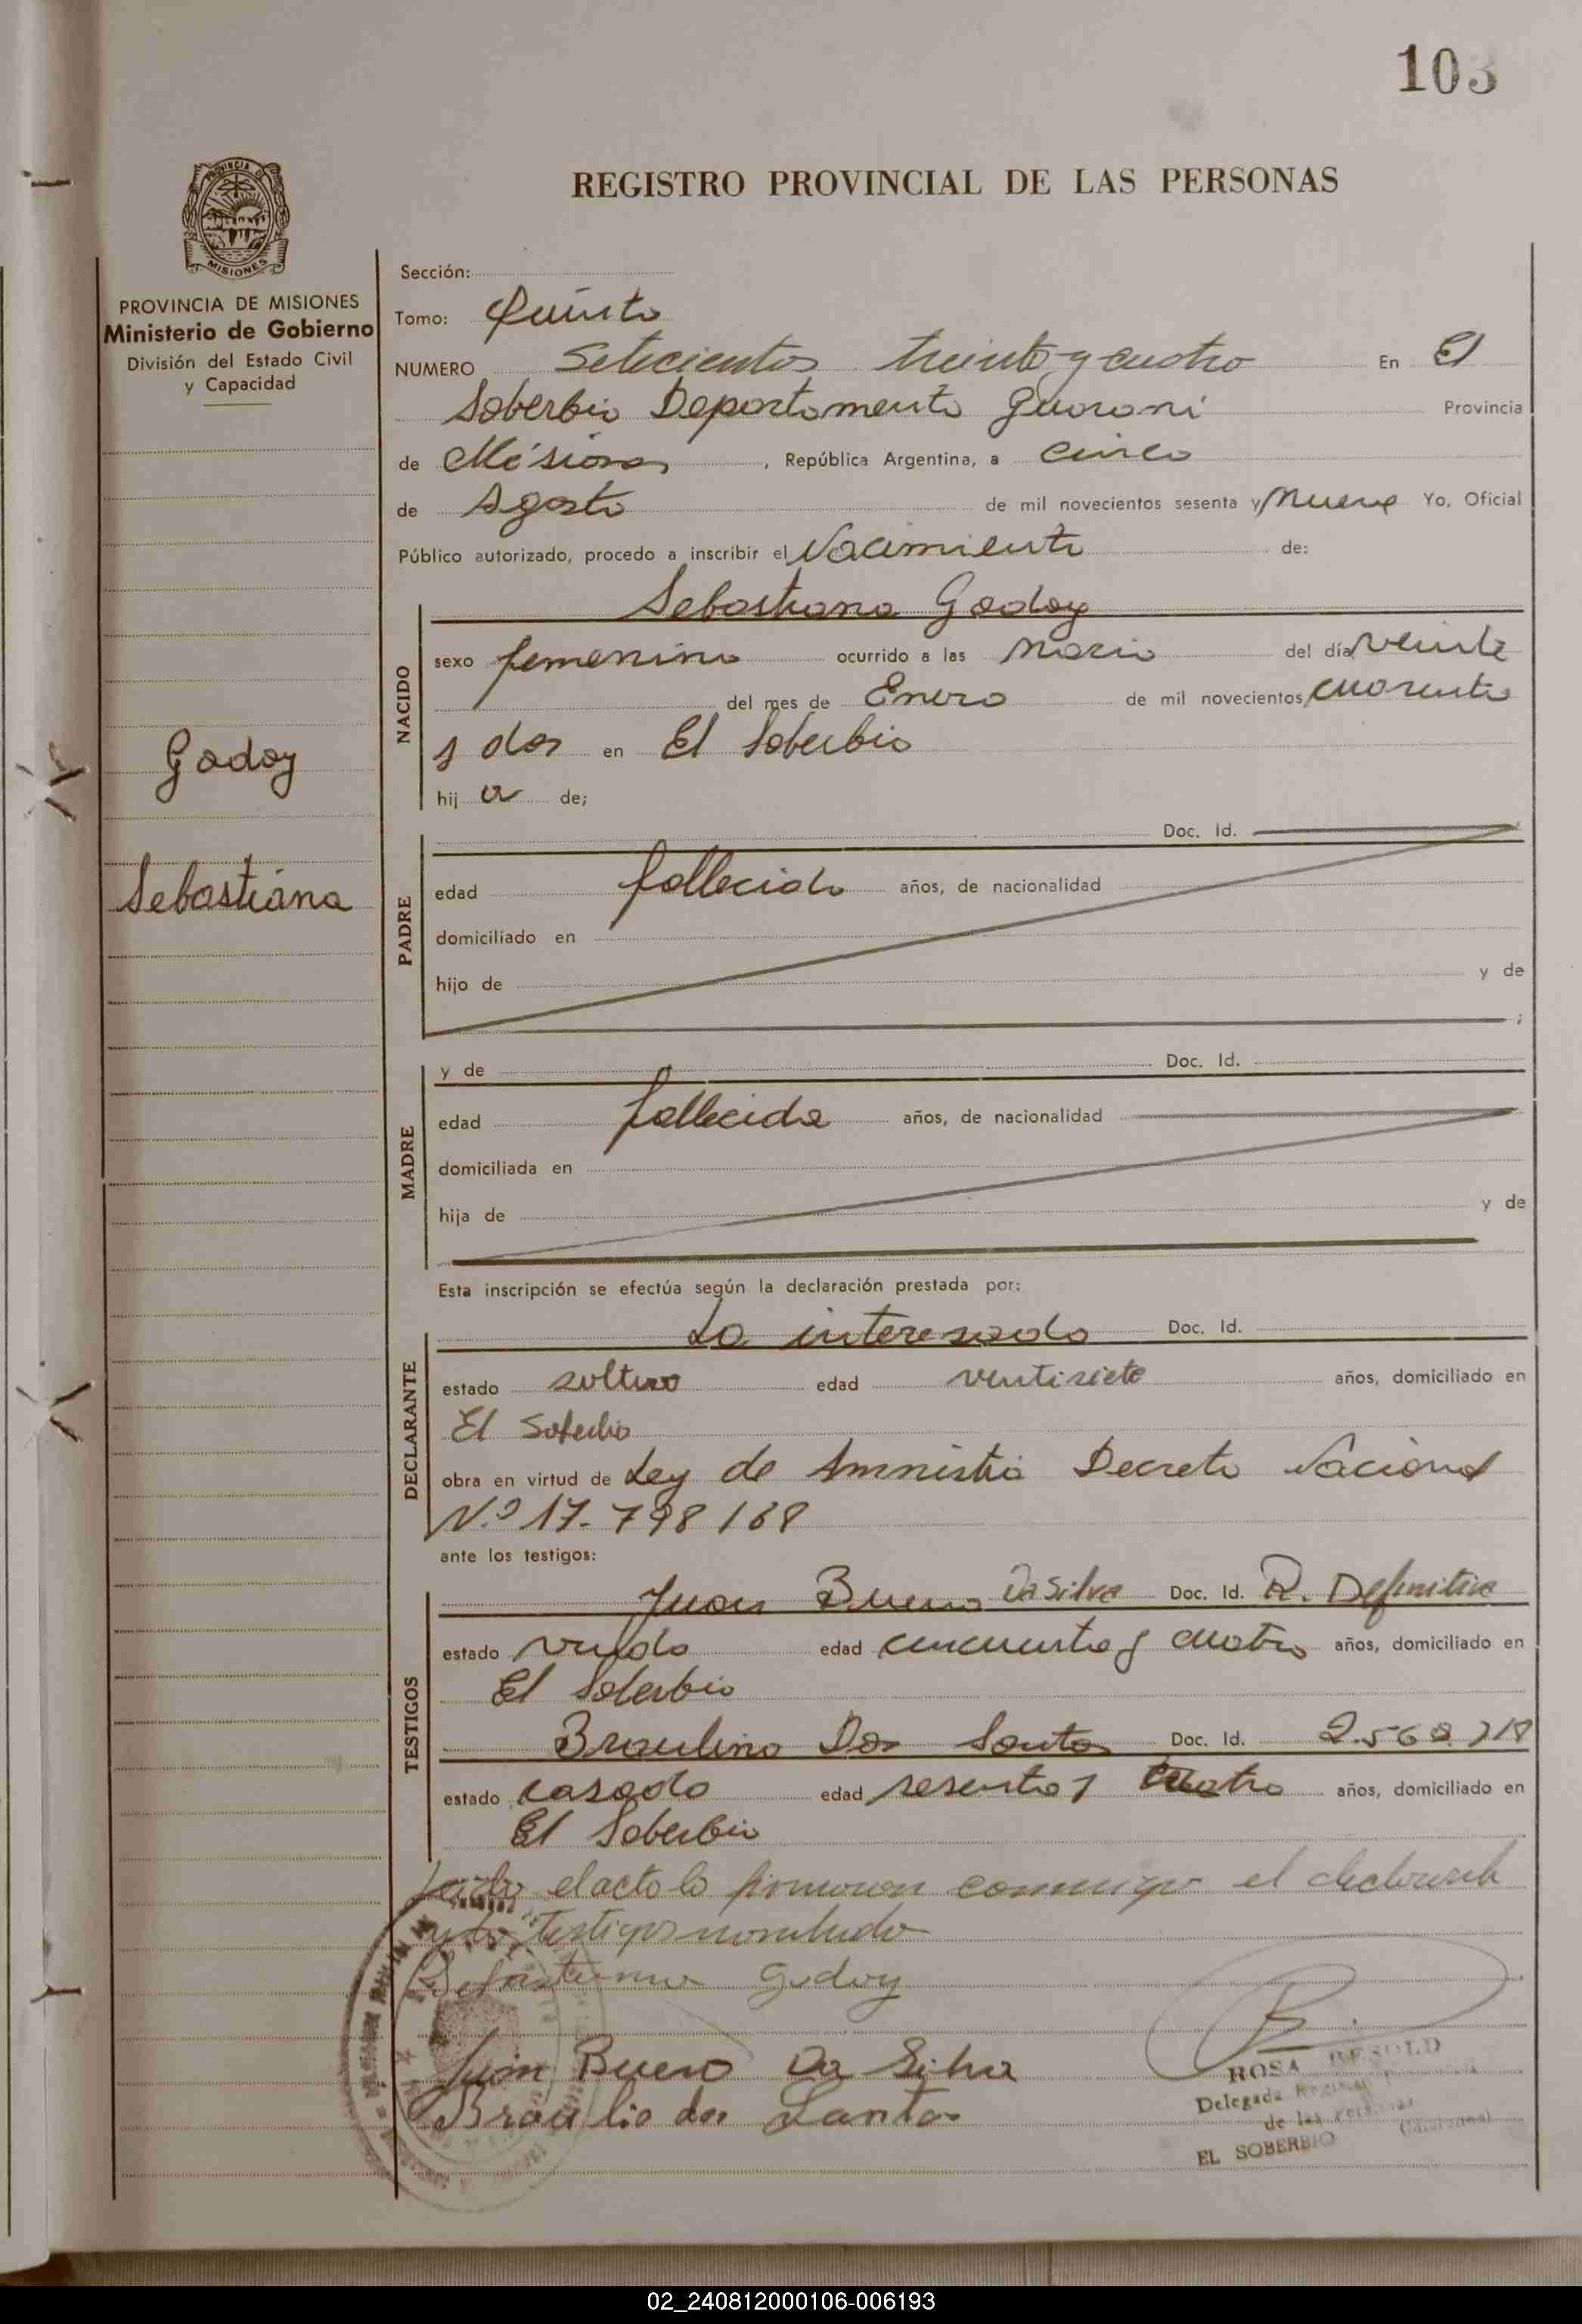 103
PROVINCIA DE
MISIONES
PROVINCIA DE MISIONES
Ministerio de Gobierno
División del Estado Civil
y Capacidad
REGISTRO PROVINCIAL DE LAS PERSONAS
Sección:
Tomo: Quinto
NUMERO Setecientos treinta y cuatro En El
Soberbio Departamento Guarani Provincia
de Misiones, República Argentina, a cinco
de Agosto de mil novecientos sesenta y Nueve Yo, Oficial
Público autorizado, procedo a inscribir el Nacimiento de:
Sebastiana Godoy
NACIDO
sexo femenino ocurrido a las del día veinte
del mes de Enero de mil novecientos cuarenta
y dos en El Soberbio
hij a de;
Godoy
Sebastiana
PADRE
Doc. Id.
edad fallecido años, de nacionalidad
domiciliado en
hijo de y de
;
MADRE
y de Doc. Id.
edad fallecida años, de nacionalidad
domiciliada en
hija de y de
Esta inscripción se efectúa según la declaración prestada por:
DECLARANTE
La interesada Doc. Id.
estado soltera edad ventisiete años, domiciliado en
El Soberbio
obra en virtud de Ley de Amnistia Decreto Nacional
N.º 17.798/68
ante los testigos:
TESTIGOS
Juan Bueno Da Silva Doc. Id. R. Definitiva
estado viudo edad cincuenta y cuatro años, domiciliado en
El Soberbio
Braulino Dos Santos Doc. Id.
estado casado edad sesenta y cuatro años, domiciliado en
El Soberbio
Leido el acto lo firmaron conmigo el declarante
testigos nombrado
Sebastiana Godoy
Juan Bueno Da Silva
Braulio dos Santos
ROSA BESOLD
Delegada Registro Provincial
de las Personas
EL SOBERBIO (Misiones)
02_240812000106-006193